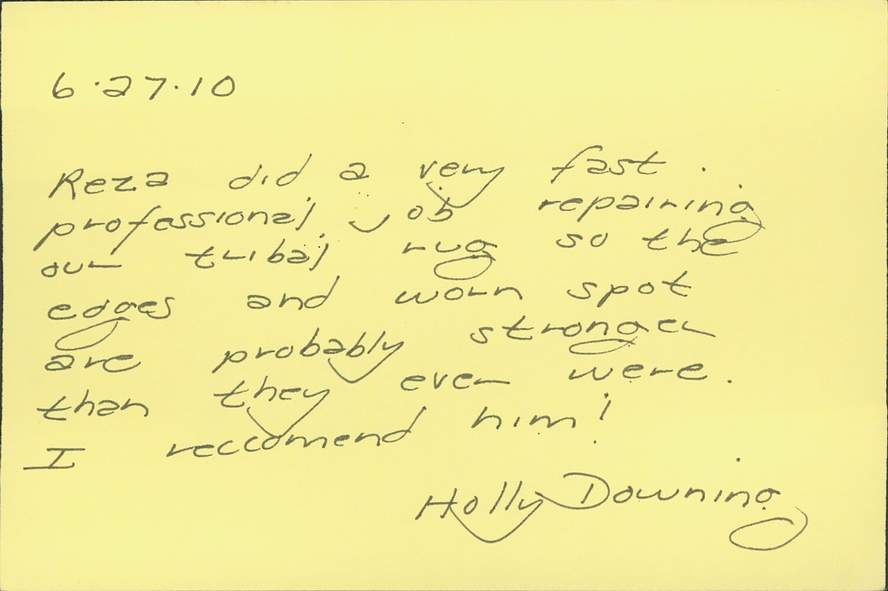 6·27·10
Reza did a very fast.
professional job repairing
our tribal rug so the
edges and worn spot
are probably stronger
than they ever were.
I reccomend him!
Holly Downing